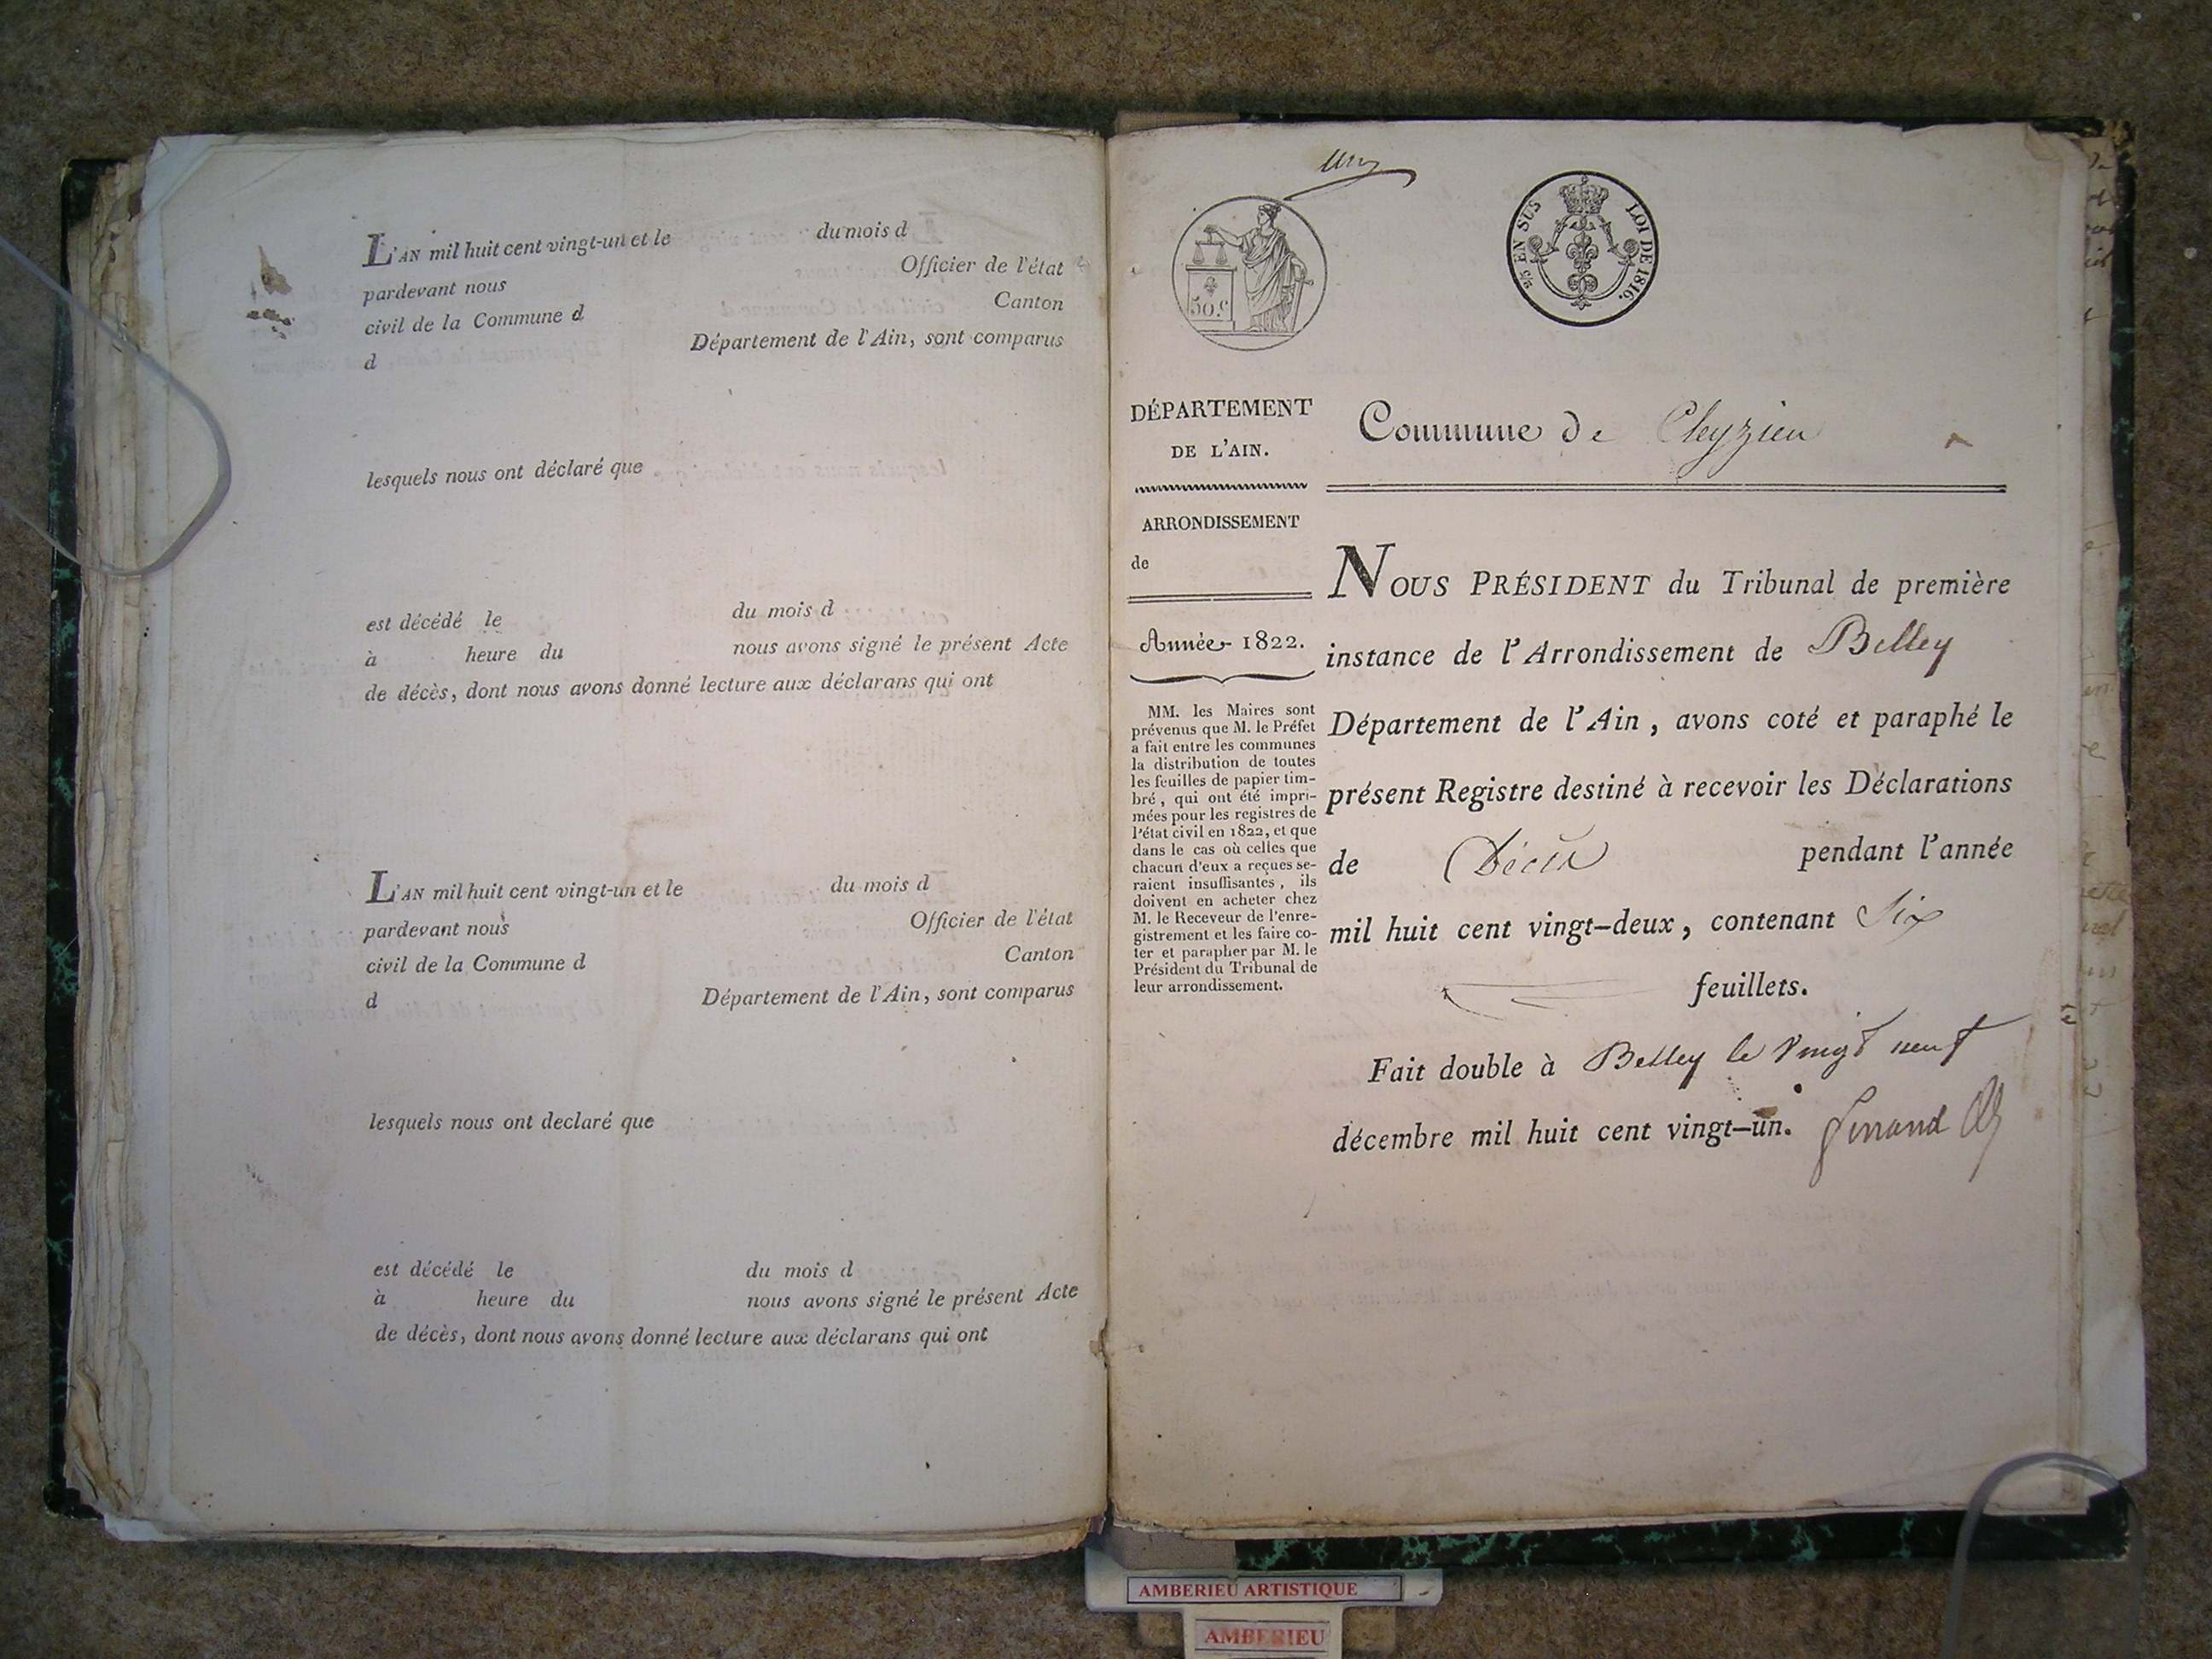 L'AN mil huit cent vingt-un et le du mois d
pardevant nous Officier de l'état
civil de la Commune d Canton
d Département de l'Ain, sont comparus
lesquels nous ont déclaré que
est décédé le du mois d
à heure du nous avons signé le présent Acte
de décès, dont nous avons donné lecture aux déclarans qui ont
L'AN mil huit cent vingt-un et le du mois d
pardevant nous Officier de l'état
civil de la Commune d Canton
d Département de l'Ain, sont comparus
lesquels nous ont declaré que
est décédé le du mois d
à heure du nous avons signé le présent Acte
de décès, dont nous avons donné lecture aux déclarans qui ont
un
50.c
2/5 EN SUS LOI DE 1816.
DÉPARTEMENT
DE L'AIN.
ARRONDISSEMENT
de
Année 1822.
MM. les Maires sont
prévenus que M. le Préfet
a fait entre les communes
la distribution de toutes
les feuilles de papier tim-
bré, qui ont été impri-
mées pour les registres de
l'état civil en 1822, et que
dans le cas où celles que
chacun d'eux a reçues se-
raient insuffisantes, ils
doivent en acheter chez
M. le Receveur de l'enre-
gistrement et les faire co-
ter et parapher par M. le
Président du Tribunal de
leur arrondissement.
Commune de Cleyzieu
NOUS PRÉSIDENT du Tribunal de première
instance de l'Arrondissement de Belley
Département de l'Ain, avons coté et paraphé le
présent Registre destiné à recevoir les Déclarations
de Décès pendant l'année
mil huit cent vingt-deux, contenant Six
feuillets.
Fait double à Belley le vingt neuf
décembre mil huit cent vingt-un.
AMBERIEU ARTISTIQUE
AMBERIEU